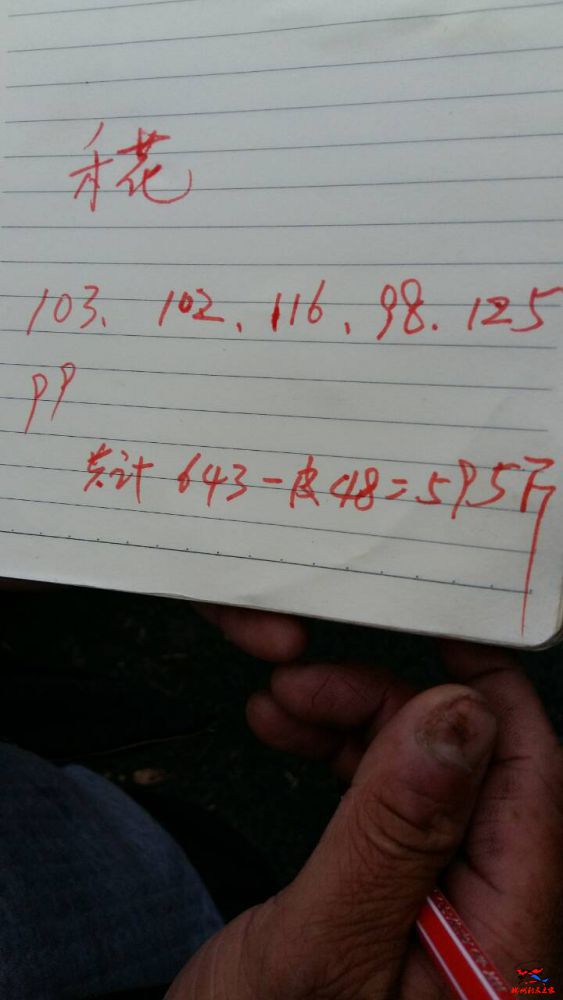 禾花
103、102、116、98.125
99
共计 643-皮48=595斤